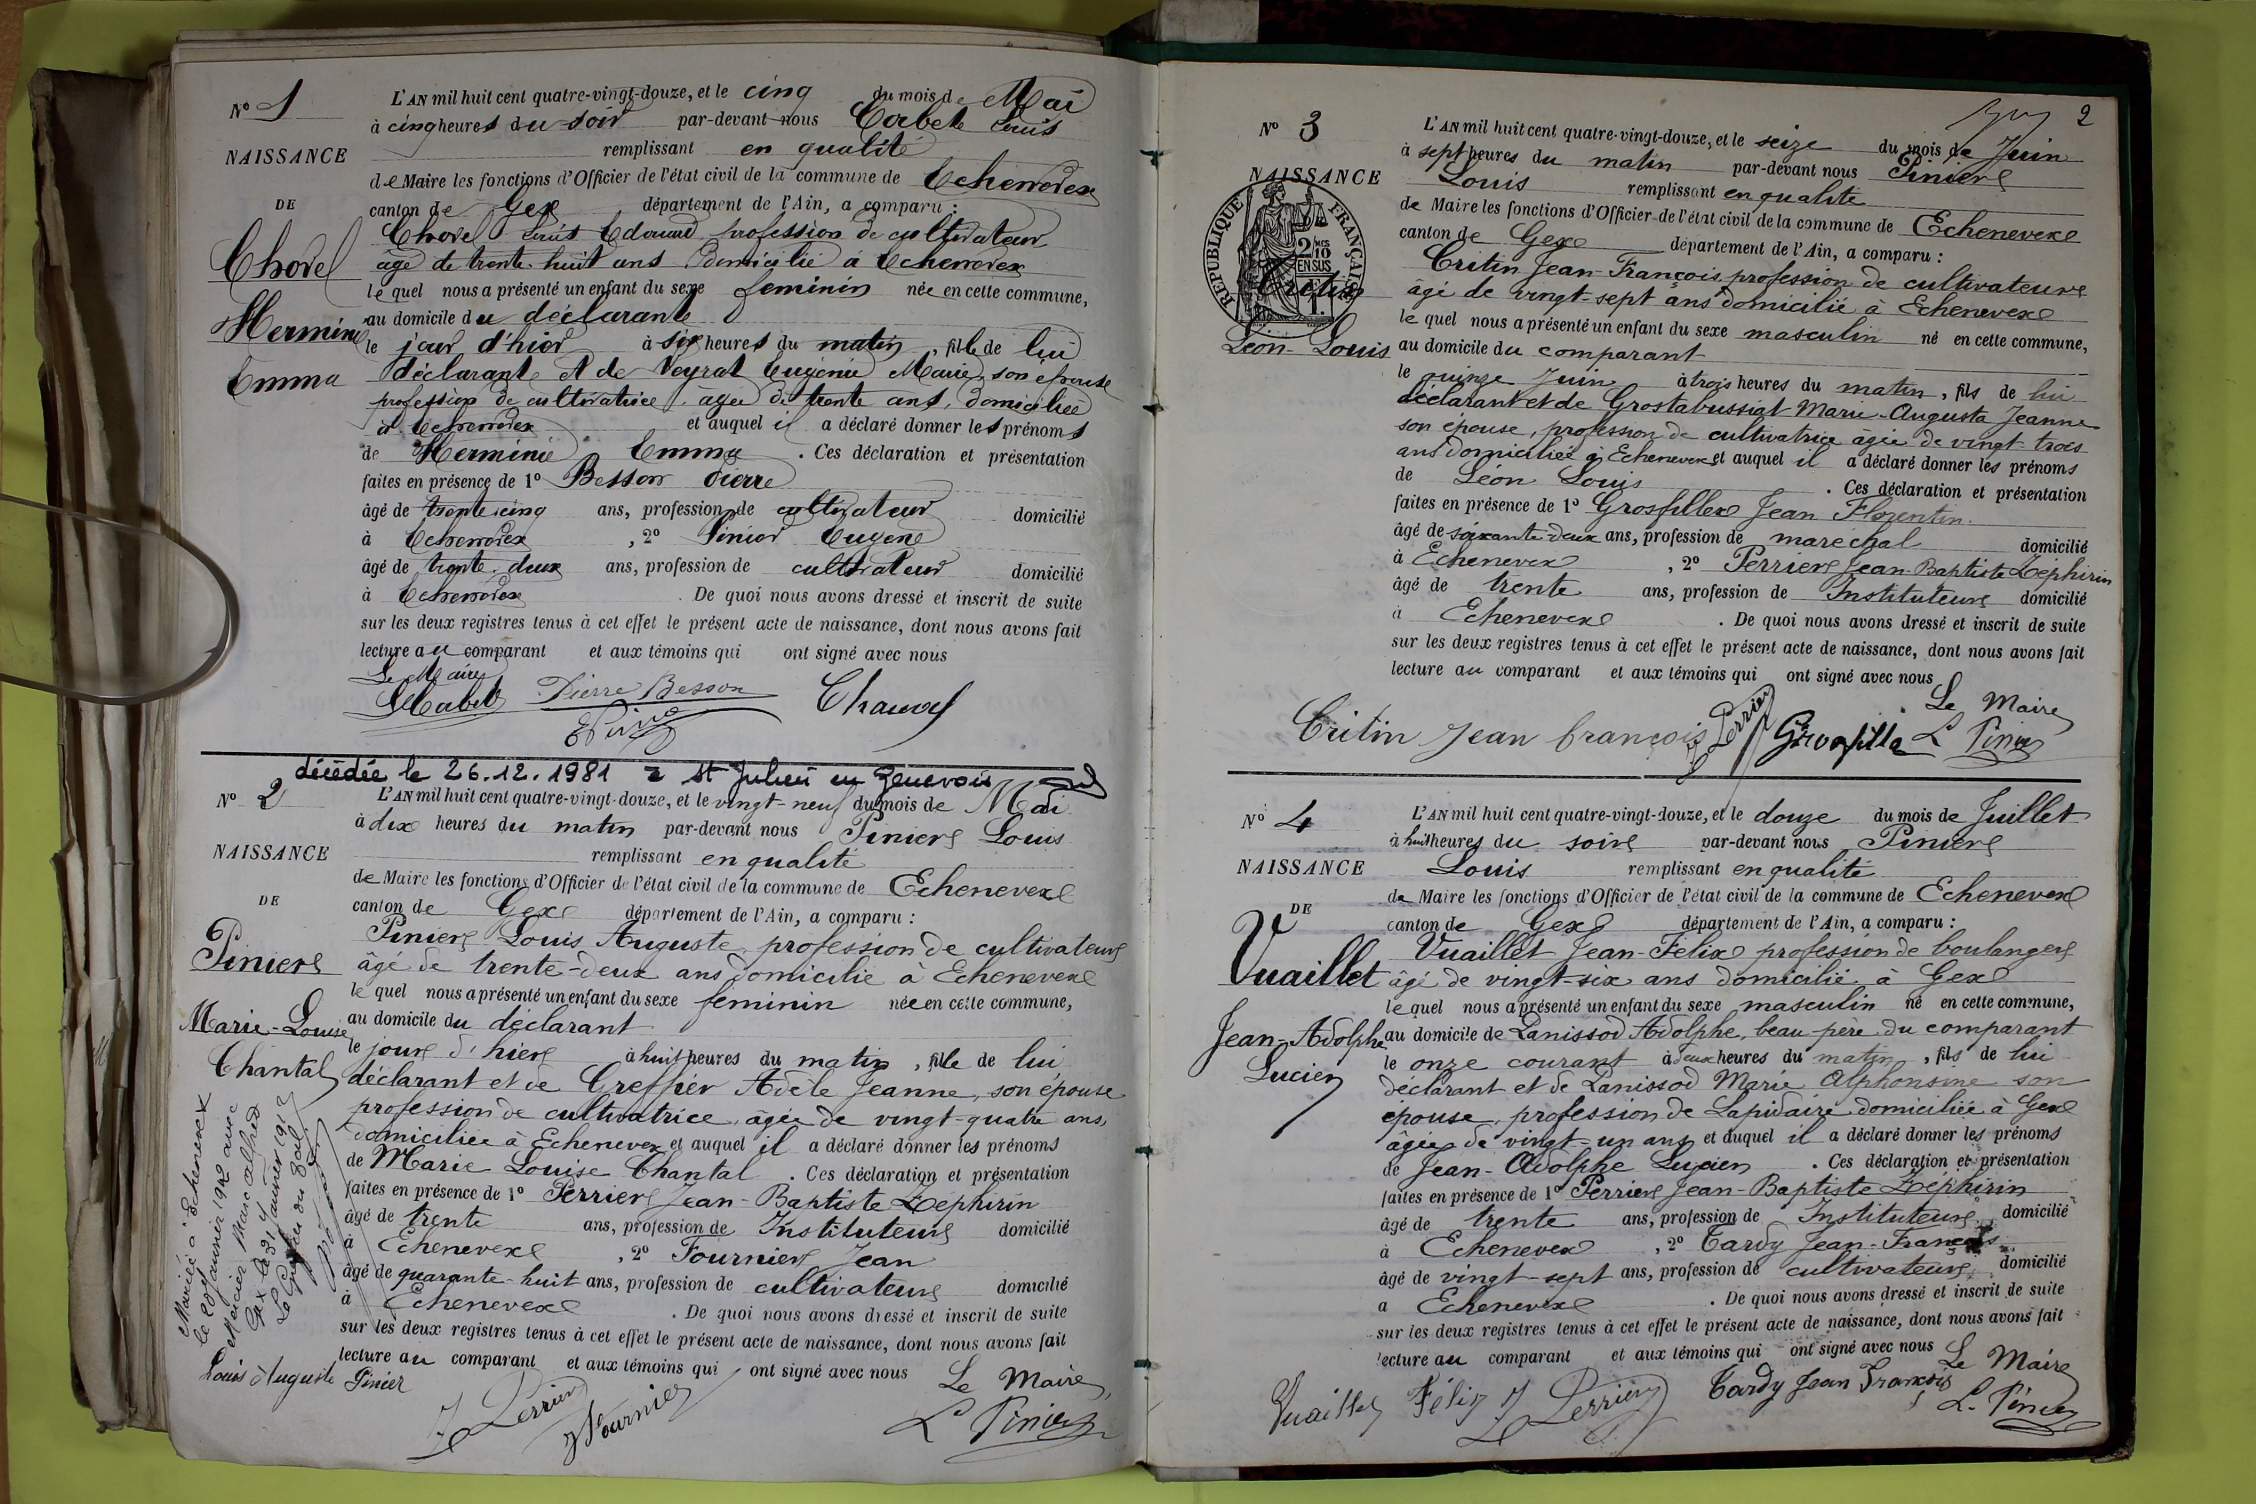 N° 1
NAISSANCE
DE
Chovel
Herminie
Emma
L'AN mil huit cent quatre-vingt-douze, et le cinq du mois de Mai
à cinq heures du soir par-devant nous Louis
remplissant en qualité
de Maire les fonctions d'Officier de l'état civil de la commune de Echenevex
canton de Gex département de l'Ain, a comparu :
Chovel Louis Edouard profession de cultivateur
âgé de trente-huit ans domicilié à Echenevex
le quel nous a présenté un enfant du sexe féminin née en cette commune,
au domicile du déclarant
le jour d'hier à six heures du matin, fille de lui
déclarant et de Veyrat Eugénie Marie, son épouse
profession de cultivatrice, âgée de trente ans, domiciliée
à Echenevex et auquel il a déclaré donner les prénoms
de Herminie Emma . Ces déclaration et présentation
faites en présence de 1° Besson Pierre
âgé de trente cinq ans, profession de cultivateur domicilié
à Echenevex , 2° Pinier Eugène
âgé de trente-deux ans, profession de cultivateur domicilié
à Echenevex . De quoi nous avons dressé et inscrit de suite
sur les deux registres tenus à cet effet le présent acte de naissance, dont nous avons fait
lecture au comparant et aux témoins qui ont signé avec nous
Le Maire
Pierre Besson
décédée le 26.12.1981 à St Julien en Genevois
N° 2
NAISSANCE
DE
Pinier
Marie-Louise
Chantal
L'AN mil huit cent quatre-vingt-douze, et le vingt-neuf du mois de Mai
à dix heures du matin par-devant nous Pinier Louis
remplissant en qualité
de Maire les fonctions d'Officier de l'état civil de la commune de Echenevex
canton de Gex département de l'Ain, a comparu :
Pinier Louis Auguste, profession de cultivateur
âgé de trente-deux ans domicilié à Echenevex
le quel nous a présenté un enfant du sexe féminin née en cette commune,
au domicile du déclarant
le jour d'hier à huit heures du matin, fille de lui
déclarant et de Greffier Adèle Jeanne, son épouse
profession de cultivatrice, âgée de vingt-quatre ans,
domiciliée à Echenevex et auquel il a déclaré donner les prénoms
de Marie Louise Chantal . Ces déclaration et présentation
faites en présence de 1° Perrier Jean-Baptiste Zéphirin
âgé de trente ans, profession de Instituteur domicilié
à Echenevex , 2° Fournier Jean
âgé de quarante-huit ans, profession de cultivateur domicilié
à Echenevex . De quoi nous avons dressé et inscrit de suite
sur les deux registres tenus à cet effet le présent acte de naissance, dont nous avons fait
lecture au comparant et aux témoins qui ont signé avec nous
Mariée à Echenevex
le 20 janvier 1912 avec
Mercier Marc Alfred
Gex le 21 janvier 1912
Le Greffier
Louis Auguste Pinier
J Perrier
J Fournier
Le Maire
L Pinier
2
N° 3
NAISSANCE
REPUBLIQUE FRANÇAISE
2/10
EN SUS
Critin
Léon-Louis
L'AN mil huit cent quatre-vingt-douze, et le seize du mois de Juin
à sept heures du matin par-devant nous Pinier
Louis remplissant en qualité
de Maire les fonctions d'Officier de l'état civil de la commune de Echenevex
canton de Gex département de l'Ain, a comparu :
Critin Jean-François profession de cultivateur
âgé de vingt-sept ans domicilié à Echenevex
le quel nous a présenté un enfant du sexe masculin né en cette commune,
au domicile du comparant
le quinze Juin à trois heures du matin, fils de lui
déclarant et de Grostabussiat Marie-Augusta Jeanne
son épouse, profession de cultivatrice âgée de vingt-trois
ans domiciliée à Echenevex et auquel il a déclaré donner les prénoms
de Léon Louis . Ces déclaration et présentation
faites en présence de 1° Grosfillex Jean Florentin
âgé de soixante-deux ans, profession de marechal domicilié
à Echenevex , 2° Perrier Jean-Baptiste Zéphirin
âgé de trente ans, profession de Instituteur domicilié
à Echenevex . De quoi nous avons dressé et inscrit de suite
sur les deux registres tenus à cet effet le présent acte de naissance, dont nous avons fait
lecture au comparant et aux témoins qui ont signé avec nous
Critin Jean françois
Perrier
Le Maire
L Pinier
N° 4
NAISSANCE
DE
Vuaillet
Jean-Adolphe
Lucien
L'AN mil huit cent quatre-vingt-douze, et le douze du mois de Juillet
à huit heures du soir par-devant nous Pinier
Louis remplissant en qualité
de Maire les fonctions d'Officier de l'état civil de la commune de Echenevex
canton de Gex département de l'Ain, a comparu :
Vuaillet Jean-Felix profession de boulanger
âgé de vingt-six ans domicilié à Gex
le quel nous a présenté un enfant du sexe masculin né en cette commune,
au domicile de Panissod Adolphe, beau-père du comparant
le onze courant à deux heures du matin, fils de lui
déclarant et de Panissod Marie Alphonsine son
épouse, profession de Lapidaire domiciliée à Gex
âgée de vingt-un ans et auquel il a déclaré donner les prénoms
de Jean-Adolphe Lucien . Ces déclaration et présentation
faites en présence de 1° Perrier Jean-Baptiste Zéphirin
âgé de trente ans, profession de Instituteur domicilié
à Echenevex , 2° Tardy Jean-François
âgé de vingt-sept ans, profession de cultivateur domicilié
à Echenevex . De quoi nous avons dressé et inscrit de suite
sur les deux registres tenus à cet effet le présent acte de naissance, dont nous avons fait
lecture au comparant et aux témoins qui ont signé avec nous
Vuaillet Félix
J Perrier
Tardy Jean François
Le Maire
L. Pinier